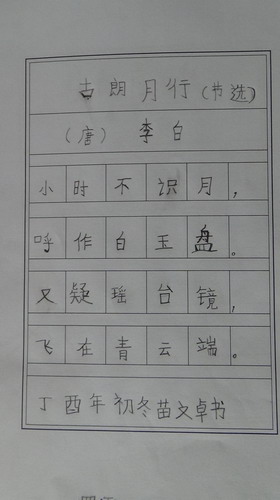 古朗月行（节选）
（唐） 李白
小时不识月，
呼作白玉盘。
又疑瑶台镜，
飞在青云端。
丁酉年初冬苗文卓书